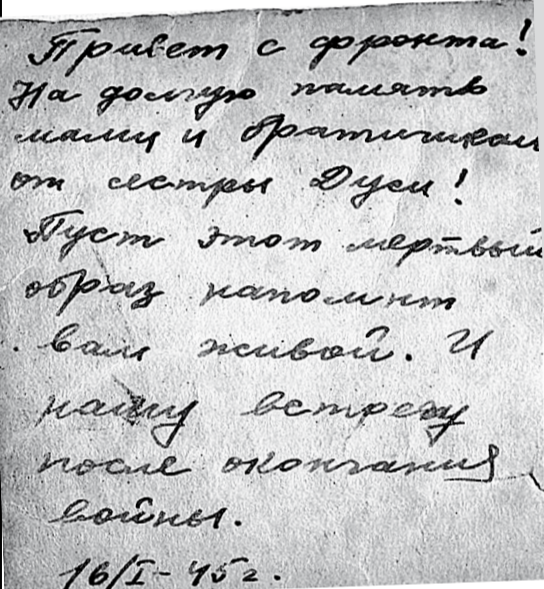 Привет с фронта!
На долгую память
мами и братишкам
от сестры Дуси!
Пуст этот мертвый
образ напомнит
вам живой. И
нашу встречу
после окончания
войны.
16/I-45г.